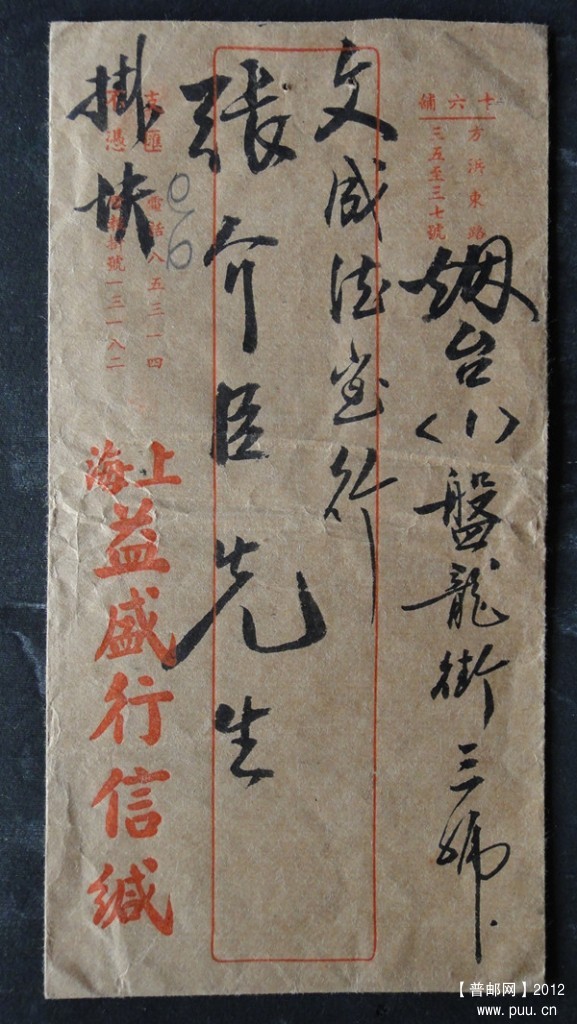 十六铺
方浜東路
三五至三七號
烟台(1)盤龍街三號
文成法堂行
張介臣先生
掛快
支匯不憑
電話八五三一四
掛號一三一八二
96
上海
益盛行信緘
【普邮网】2012
www.puu.cn